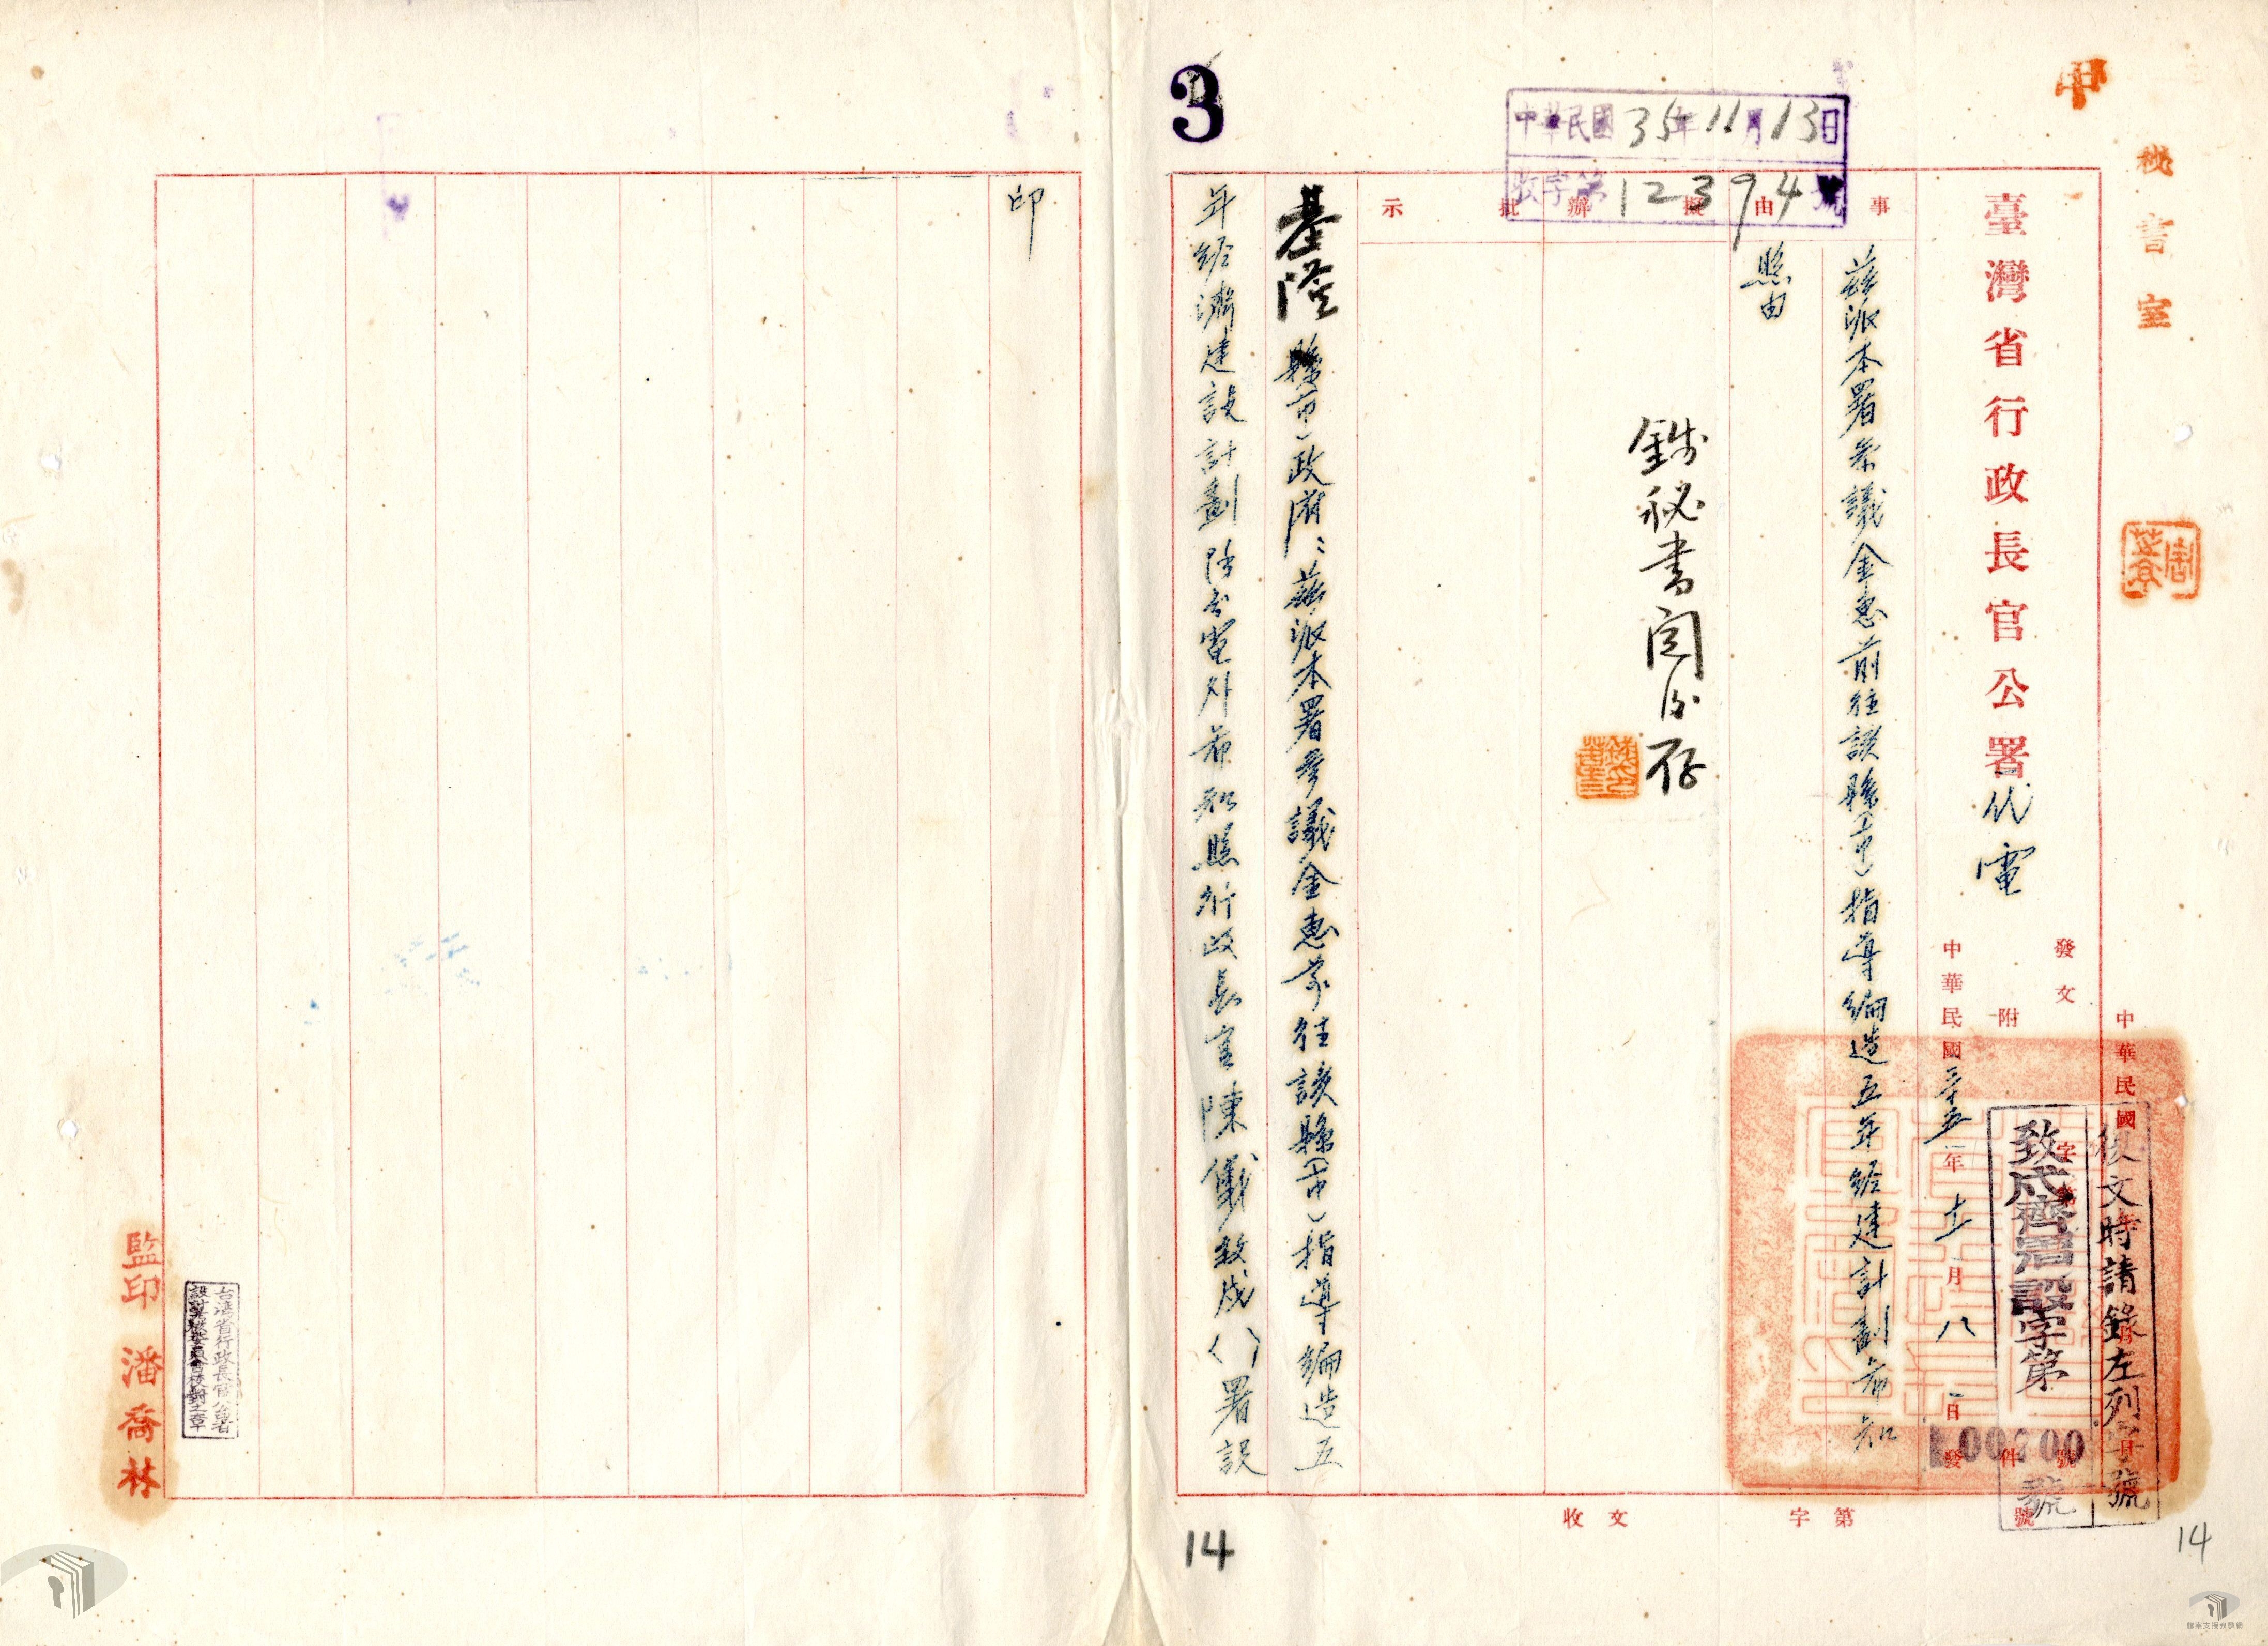 中
秘書室
周
3
中華民國35年11月13日
收字第12394號
臺灣省行政長官公署代電
發文
字第
號
附
件
中華民國三十五年十一月八日發
復文時請錄左列字號
致戌齊署設字第
00700
號
事由
擬辦
批示
茲派本署參議金惠前往該縣(市)指導編造五年經建計劃希知
照由
錢秘書閱後存
基隆縣(市)政府:茲派本署參議金惠前往該縣(市)指導編造五
年經濟建設計劃除分電外希知照行政長官陳儀致戌()署設
印
收文
字第
號
台灣省行政長官公署
設計考核委員會校對之章
監印潘喬林
14
14
檔案支援教學網